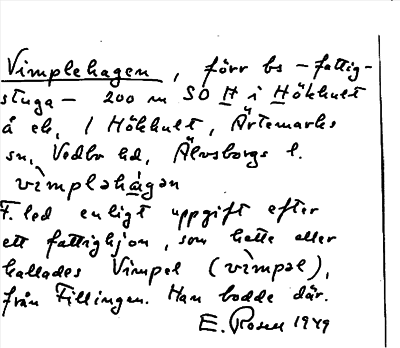 Vimplehagen, förr bs – fattig-
stuga – 200 m SO H i Hökhult
å ek, / Hökhult, Ärtemarks
sn, Vedbo hd, Älvsborgs l.
vìmpləhágən
F. led enligt uppgift efter
ett fattighjon, som hette eller
kallades Vimpel (vìmpəl),
från Fillingen. Han bodde där.
E. Rosell 1949